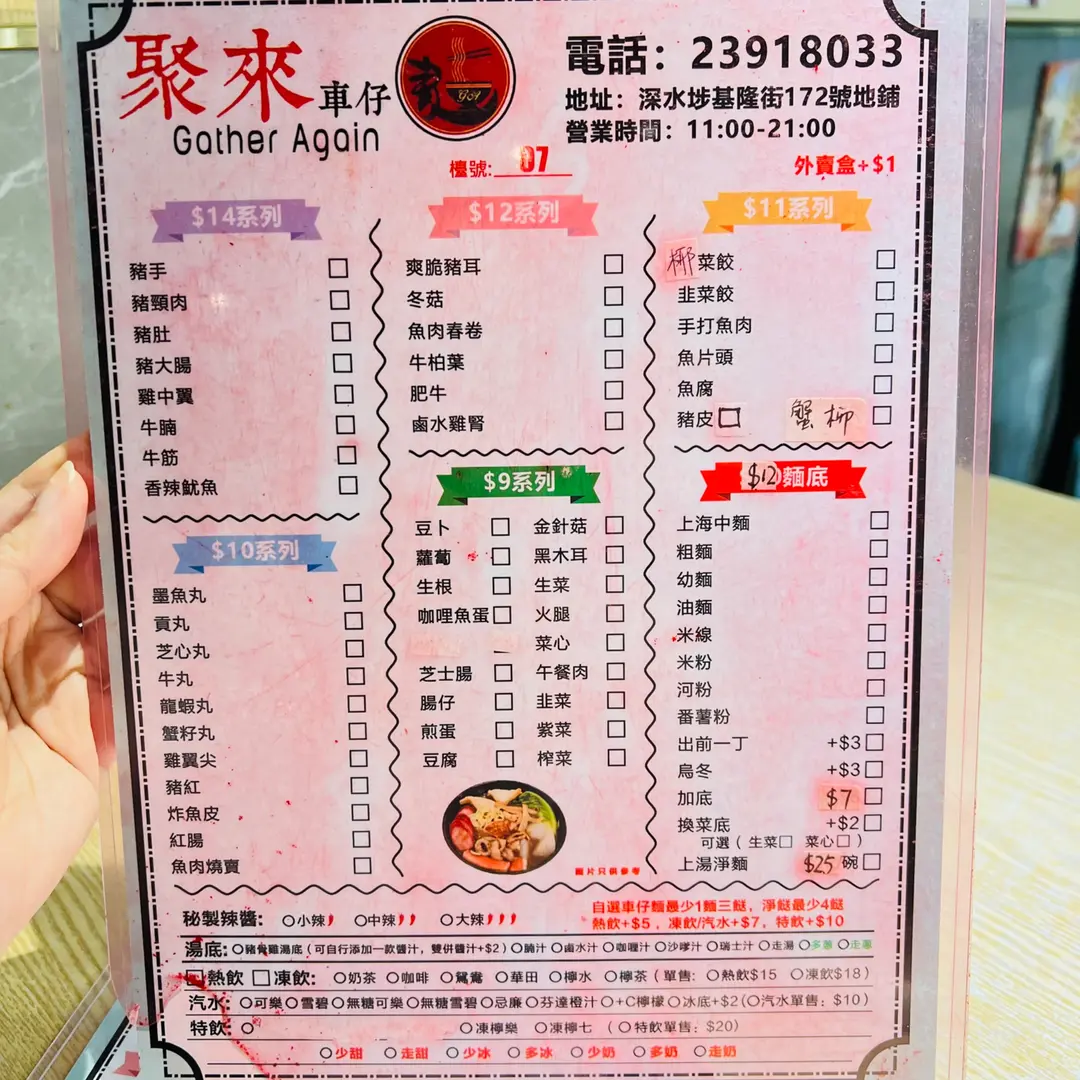 聚來車仔
Gather Again
電話：23918033
地址：深水埗基隆街172號地鋪
營業時間：11:00-21:00
檯號: 07
外賣盒+$1
$14系列
豬手
豬頸肉
豬肚
豬大腸
雞中翼
牛腩
牛筋
香辣魷魚
$10系列
墨魚丸
貢丸
芝心丸
牛丸
龍蝦丸
蟹籽丸
雞翼尖
豬紅
炸魚皮
紅腸
魚肉燒賣
$12系列
爽脆豬耳
冬菇
魚肉春卷
牛柏葉
肥牛
鹵水雞腎
$9系列
豆卜 金針菇
蘿蔔 黑木耳
生根 生菜
咖哩魚蛋 火腿
菜心
芝士腸 午餐肉
腸仔 韭菜
煎蛋 紫菜
豆腐 榨菜
圖片只供參考
$11系列
椰菜餃
韭菜餃
手打魚肉
魚片頭
魚腐
豬皮 蟹柳
$12麵底
上海中麵
粗麵
幼麵
油麵
米線
米粉
河粉
番薯粉
出前一丁 +$3
烏冬 +$3
加底 $7
換菜底 +$2
可選（生菜 菜心）
上湯淨麵 $25 碗
秘製辣醬： 小辣 中辣 大辣
自選車仔麵最少1麵三餸，淨餸最少4餸
熱飲+$5，凍飲/汽水+$7，特飲+$10
湯底：豬骨雞湯底（可自行添加一款醬汁，雙併醬汁+$2）腩汁 鹵水汁 咖喱汁 沙嗲汁 瑞士汁 走湯 多蔥 走蔥
熱飲 凍飲： 奶茶 咖啡 鴛鴦 華田 檸水 檸茶（單售：熱飲$15 凍飲$18）
汽水：可樂 雪碧 無糖可樂 無糖雪碧 忌廉 芬達橙汁 +C檸檬 冰底+$2(汽水單售：$10)
特飲： 凍檸樂 凍檸七 （特飲單售：$20）
少甜 走甜 少冰 多冰 少奶 多奶 走奶